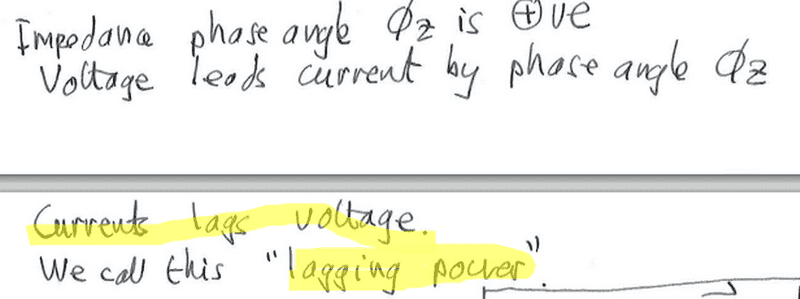 Impedance phase angle ϕz is ⊕ve
Voltage leads current by phase angle ϕz
Currents lags voltage.
We call this "lagging power".